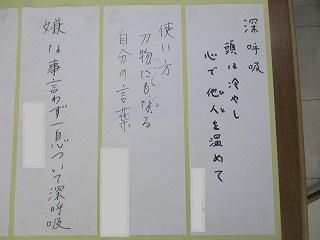 深呼吸
頭は冷やし
心で他人を温めて
ひと
使い方
刃物にもなる
はもの
自分の言葉
嫌な事言わず一息ついて深呼吸